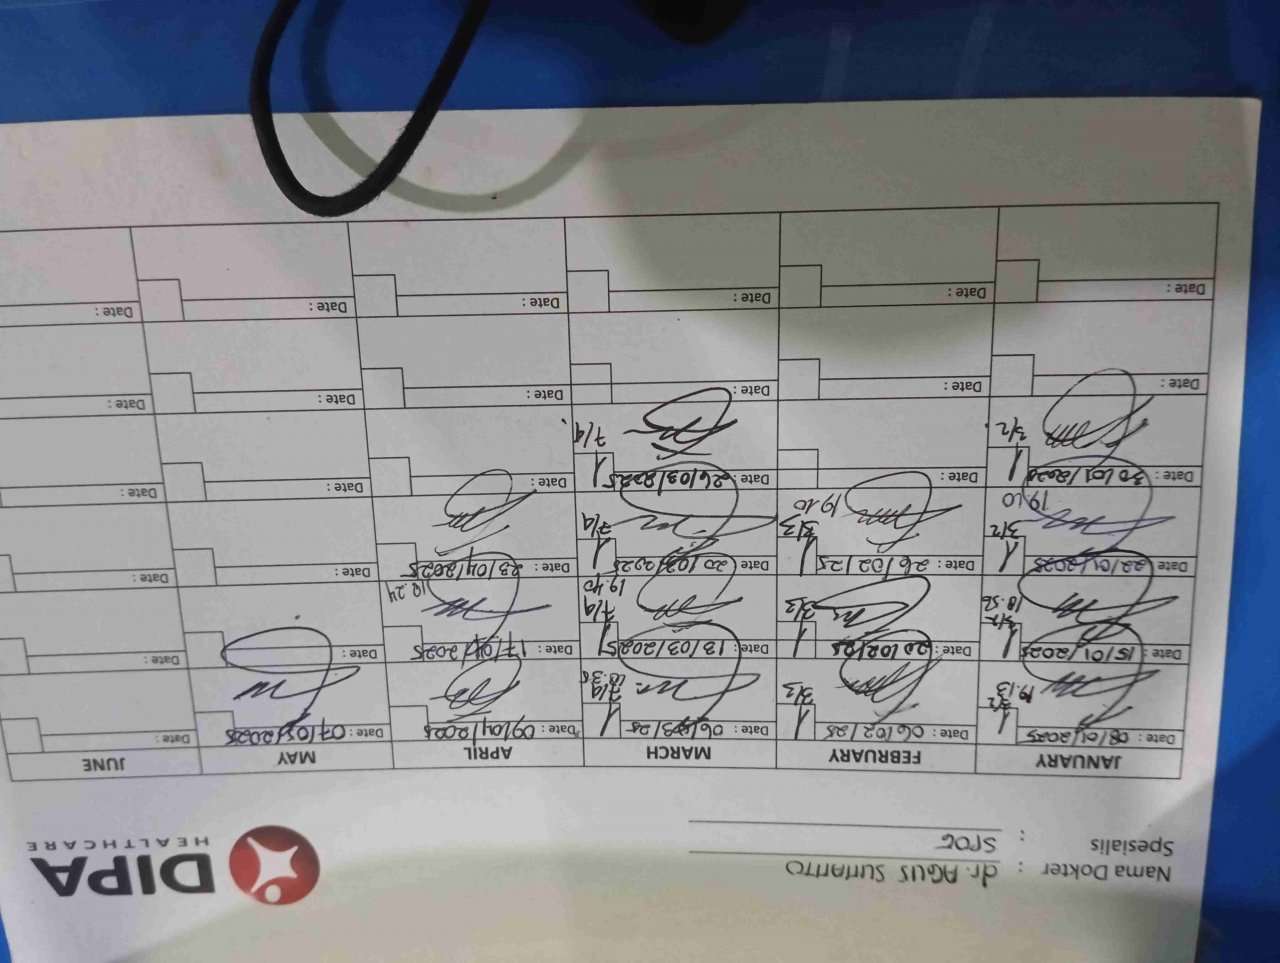 DIPA
HEALTHCARE
Nama Dokter : dr. AGUS SUTIANTO
Spesialis : SPOG
JANUARY FEBRUARY MARCH APRIL MAY JUNE
Date : 08/01/2025 Date : 06/02/25 Date : 06/03/25 Date : 09/04/2025 Date : 07/05/2025 Date :
3/2 3/3 7/4
19.13 18.36
Date : 15/01/2025 Date : 20/02/25 Date : 13/03/2025 Date : 17/04/2025 Date : Date :
3/2 3/3 7/4
18.56 19.40 18.24
Date : 22/01/2025 Date : 26/02/25 Date : 20/03/2025 Date : 23/04/2025 Date : Date :
3/2 3/3 7/4
19.10 19.20
Date : 30/01/2025 Date : Date : 26/03/2025 Date : Date : Date :
3/2 7/4
Date : Date : Date : Date : Date : Date :
Date : Date : Date : Date : Date : Date :